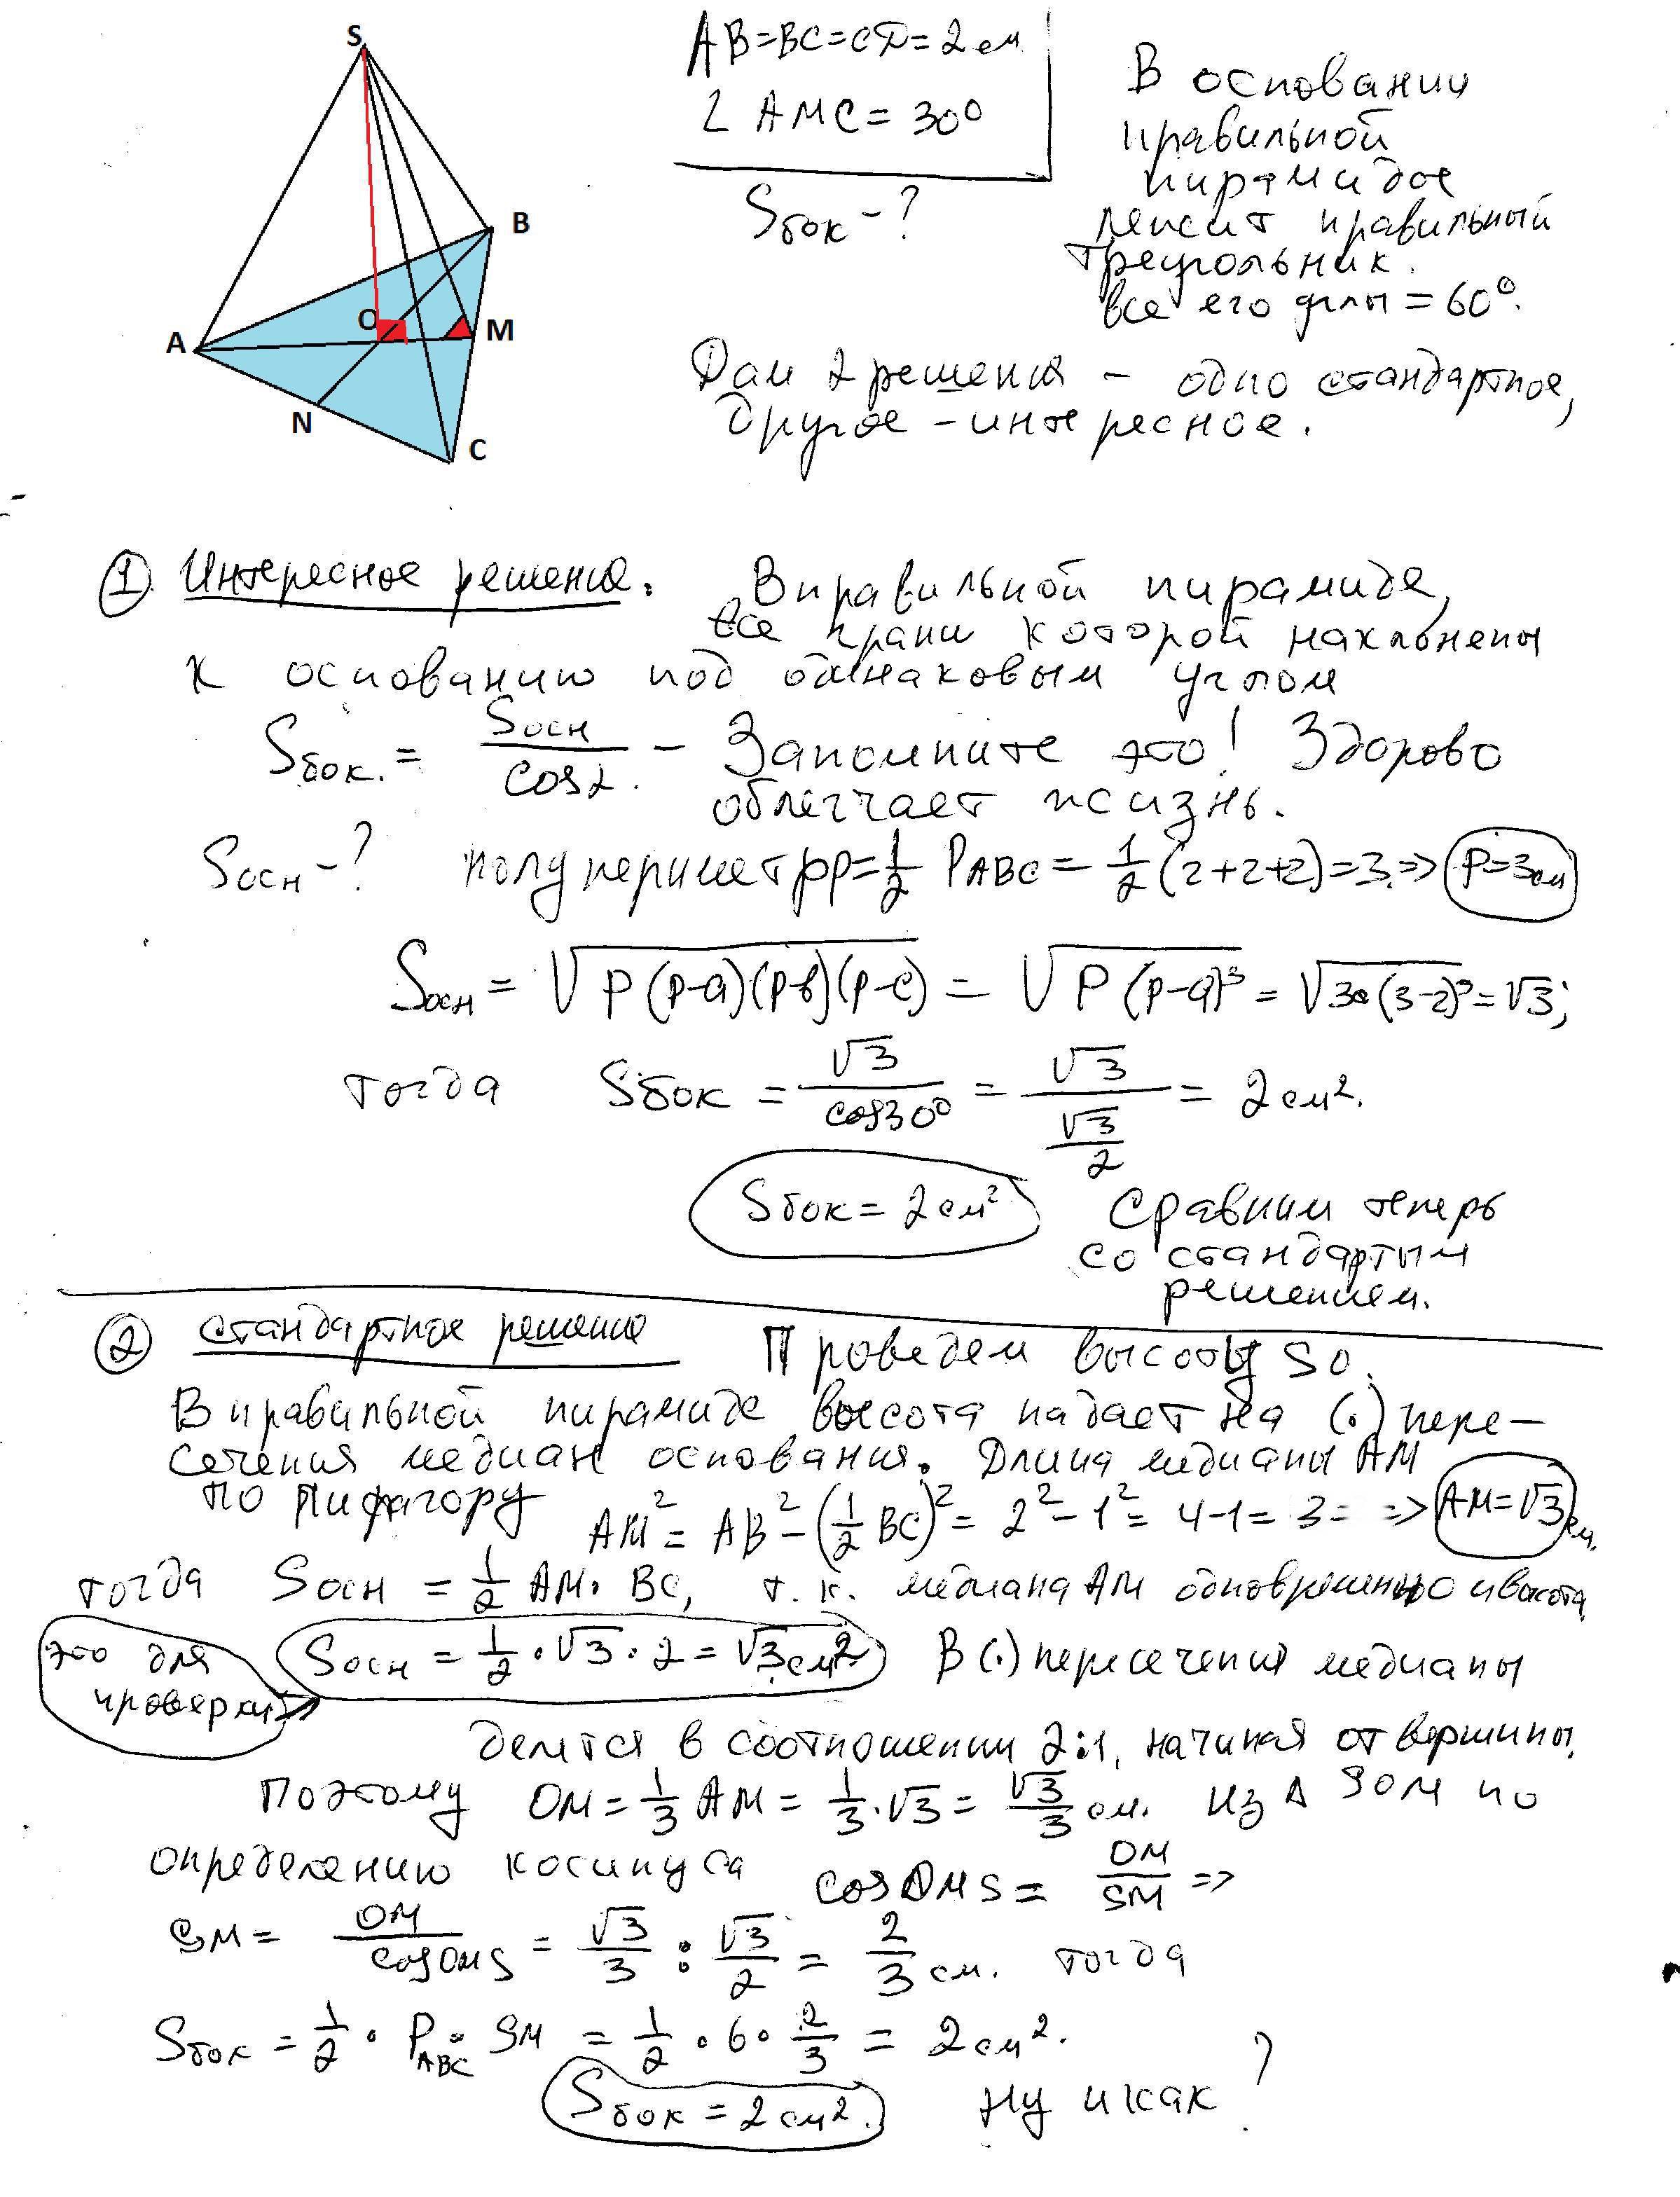 S
B
O
M
A
N
C
AB=BC=CD=2см
∠ AMC = 30°
Sбок - ?
В основании
правильной
пирамидое
лежит правильный
треугольник.
все его углы = 60°.
Дам 2 решения - одно стандартное,
другое - интересное.
① Интересное решение. В правильной пирамиде,
все грани которой наклонены
к основанию под одинаковым углом
Sбок. = Sосн / cosα. - Запомните это! Здорово
облегчает жизнь.
Sосн - ? полупериметр p = 1/2 P ABC = 1/2 (2+2+2) = 3. => p=3см
Sосн = √p(p-a)(p-b)(p-c) = √p(p-a)³ = √3·(3-2)³ = √3;
тогда Sбок = √3 / cos30° = √3 / (√3/2) = 2см².
Sбок = 2см²
Сравним теперь
со стандартым
решением.
② стандартное решение Проведем высоту SO.
В правильной пирамиде высота падает на (·) пере-
сечения медиан основания. Длина медианы AM
по Пифагору AM² = AB² - (1/2 BC)² = 2² - 1² = 4-1 = 3 = => AM=√3 см.
тогда Sосн = 1/2 AM · BC, т.к. медиана AM одновременно и высота
это для
проверки
Sосн = 1/2 · √3 · 2 = √3 см² В (·) пересечения медианы
делятся в соотношении 2:1, начиная от вершины.
Поэтому OM = 1/3 AM = 1/3 · √3 = √3/3 см. Из Δ SOM по
определению косинуса cosOMS = OM/SM =>
SM = OM / cosOMS = √3/3 : √3/2 = 2/3 см. тогда
Sбок = 1/2 · P ABC · SM = 1/2 · 6 · 2/3 = 2см².
Sбок = 2см².
Ну и как ?